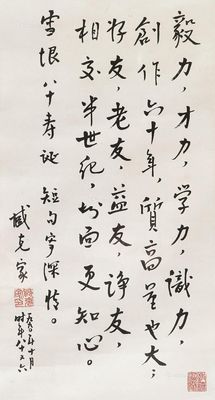 毅力，才力，学力，識力，
創作六十年，質高量也大；
好友，老友，益友，諍友，
相交半世纪，知面更知心。
雪垠八十寿诞 短句寄深情。
臧克家
一九九〇年十月
时年八十又六